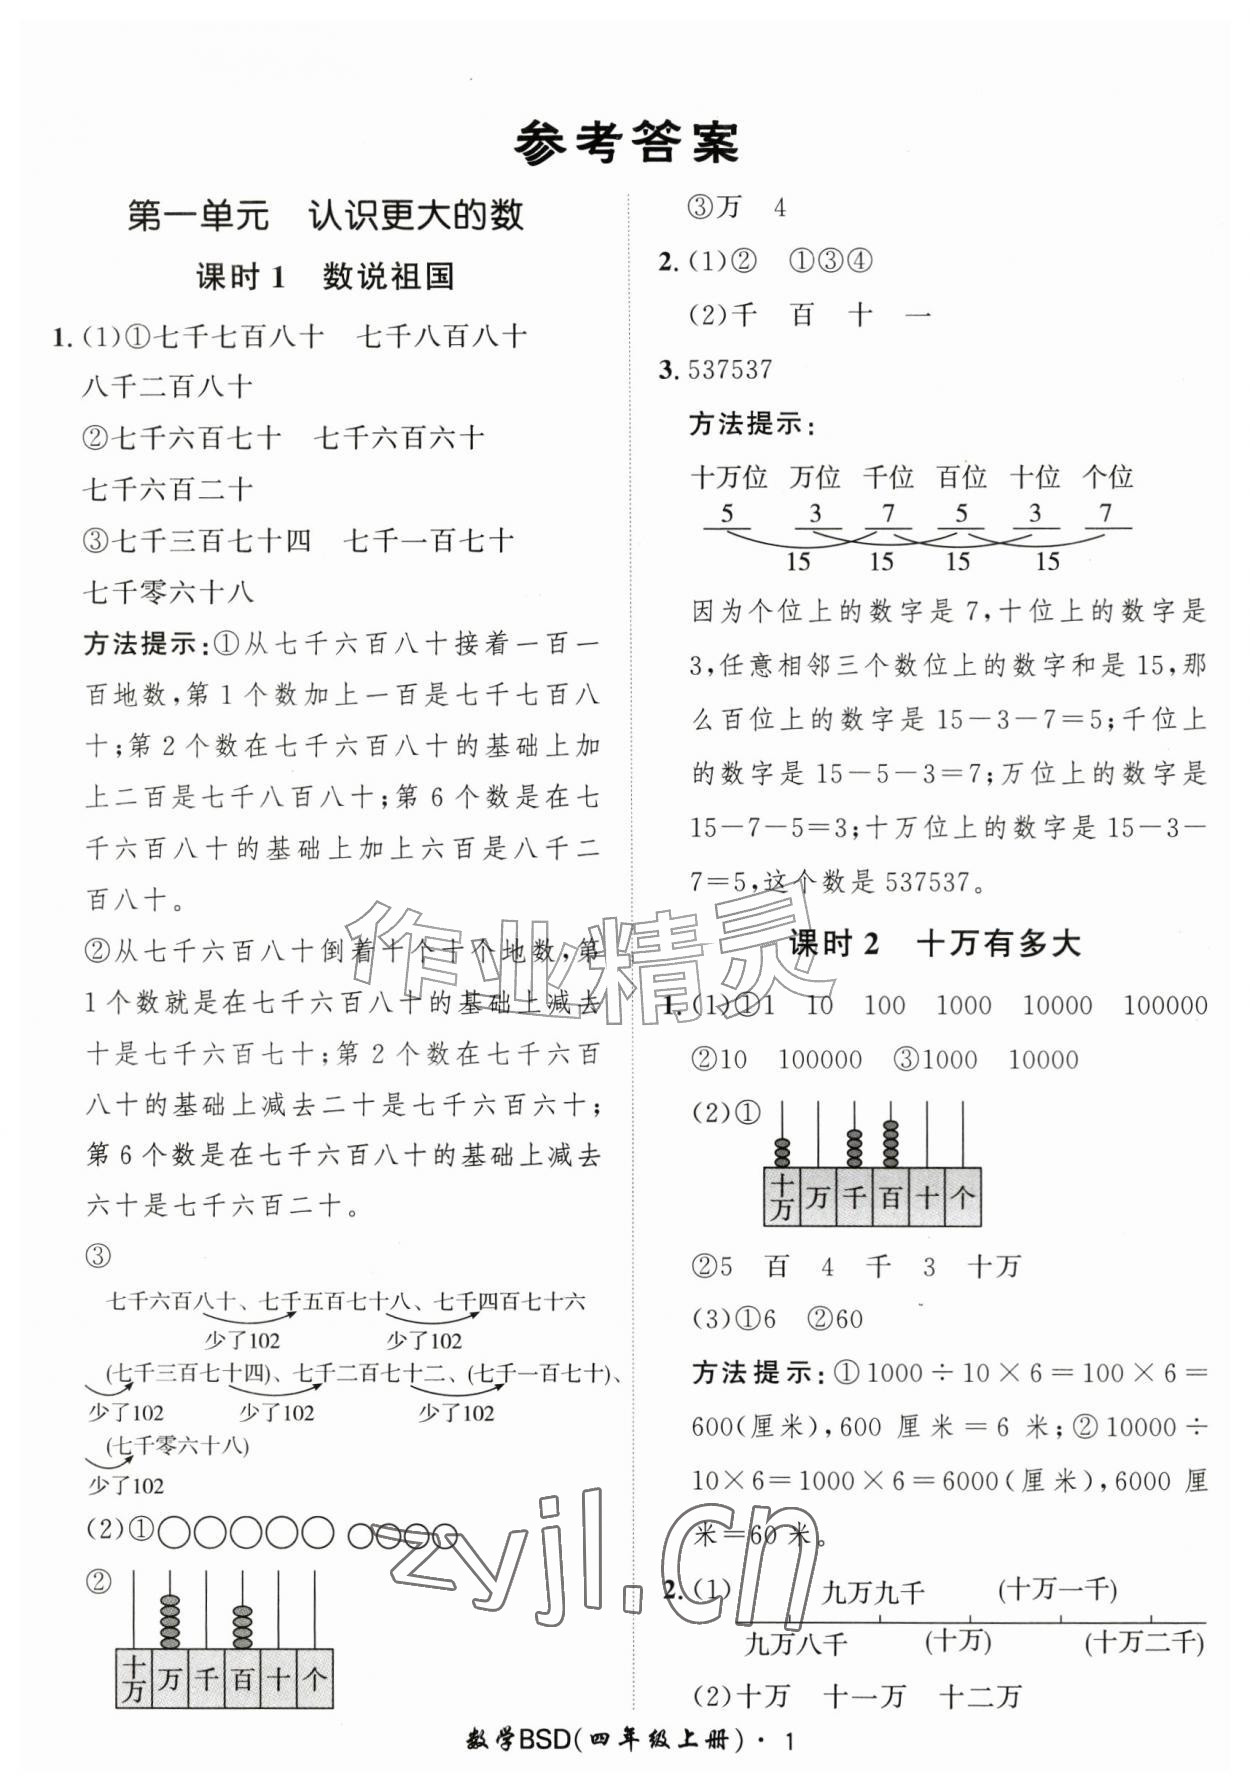 参考答案
第一单元 认识更大的数
课时1 数说祖国
1. (1)①七千七百八十 七千八百八十
八千二百八十
②七千六百七十 七千六百六十
七千六百二十
③七千三百七十四 七千一百七十
七千零六十八
方法提示:①从七千六百八十接着一百一
百地数,第1个数加上一百是七千七百八
十;第2个数在七千六百八十的基础上加
上二百是七千八百八十;第6个数是在七
千六百八十的基础上加上六百是八千二
百八十。
②从七千六百八十倒着十个十个地数,第
1个数就是在七千六百八十的基础上减去
十是七千六百七十;第2个数在七千六百
八十的基础上减去二十是七千六百六十;
第6个数是在七千六百八十的基础上减去
六十是七千六百二十。
③
七千六百八十、七千五百七十八、七千四百七十六
少了102 少了102
(七千三百七十四)、七千二百七十二、(七千一百七十)、
少了102 少了102 少了102
(七千零六十八)
少了102
(2)①○○○○○ ○○○○
②
十万 万 千 百 十 个
③万 4
2. (1)② ①③④
(2)千 百 十 一
3. 537537
方法提示:
十万位 万位 千位 百位 十位 个位
5 3 7 5 3 7
15 15 15 15
因为个位上的数字是7,十位上的数字是
3,任意相邻三个数位上的数字和是15,那
么百位上的数字是15-3-7=5;千位上
的数字是15-5-3=7;万位上的数字是
15-7-5=3;十万位上的数字是15-3-
7=5,这个数是537537。
课时2 十万有多大
1. (1)①1 10 100 1000 10000 100000
②10 100000 ③1000 10000
(2)①
十万 万 千 百 十 个
②5 百 4 千 3 十万
(3)①6 ②60
方法提示:①1000÷10×6=100×6=
600(厘米),600厘米=6米;②10000÷
10×6=1000×6=6000(厘米),6000厘
米=60米。
2. (1) 九万九千 (十万一千)
九万八千 (十万) (十万二千)
(2)十万 十一万 十二万
数学BSD(四年级上册)·1
作业精灵
zyjl.cn